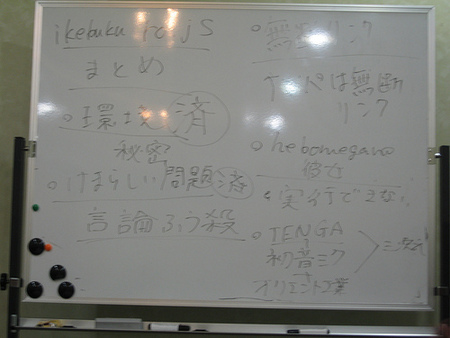 ikebukurojs
まとめ
環境 済
秘密
けまらしい問題 済
言論ふう殺
無断リンク
ナンパは無断
リンク
hebomegane
彼女
実行できない
TENGA
初音ミク
オリエント工業
三次元